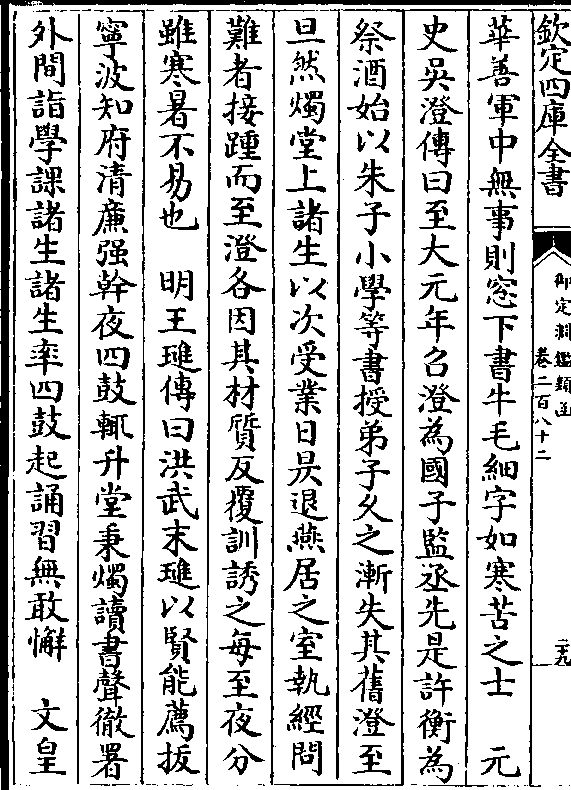 欽定四庫全書
御定淵鑑類函
卷二百八十二
二九
華善軍中無事則窓下書牛毛細字如寒苦之士　元
史吳澄傳曰至大元年召澄為國子監丞先是許衡為
祭酒始以朱子小學等書授弟子久之漸失其舊澄至
旦然燭堂上諸生以次受業日昃退燕居之室執經問
難者接踵而至澄各因其材質反覆訓誘之每至夜分
雖寒暑不易也　明王璡傳曰洪武末璡以賢能薦拔
寧波知府清廉强幹夜四鼓輒升堂秉燭讀書聲徹署
外間詣學課諸生諸生率四鼓起誦習無敢懈　文皇